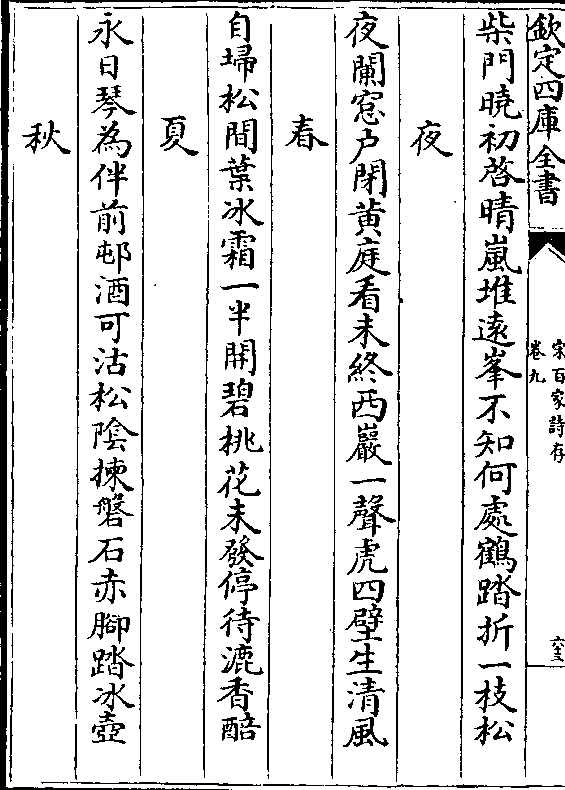 欽定四庫全書
宋百家詩存
卷九
六十三
柴門曉初啓晴嵐堆遠峯不知何處鶴踏折一枝松
夜
夜闌窓户閉黄庭看未終西巖一聲虎四壁生清風
春
自埽松間葉冰霜一半開碧桃花未發停待漉香醅
夏
永日琴為伴前邨酒可沽松陰揀磐石赤腳踏冰壺
秋